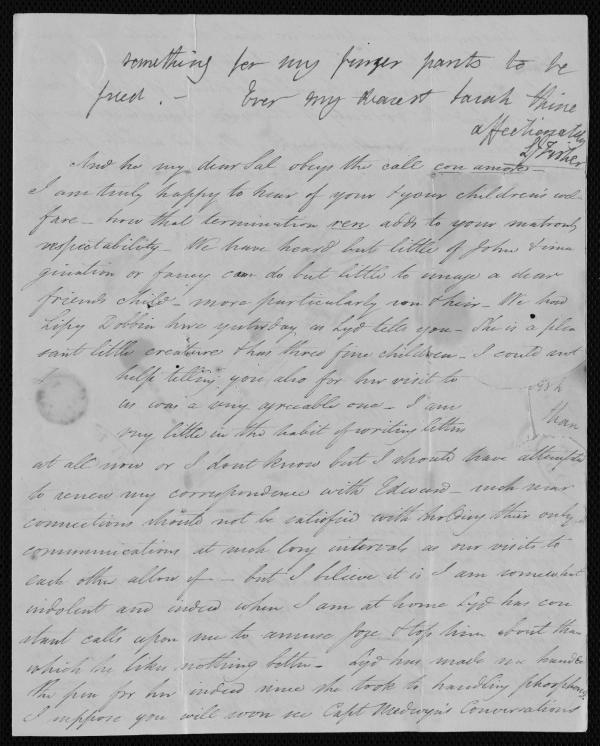 something for my finger pants to be
fixed. — Ever my dearest Sarah thine
affectionately
L Fisher
And he my dear Sal obeys the call con amore —
I am truly happy to hear of your & your children's wel-
fare — how that termination ren adds to your matronly
respectability — We have heard but little of John & ima
gination or fancy can do but little to image a dear
friends child — more particularly son & heir — We had
Lipy Dobbin here yesterday as Lyd tells you — She is a plea
sant little creature & has three fine children — I could not
help telling you also for her visit to
us was a very agreeable one — I am
very little in the habit of writing letters
than
at all now or I dont know but I should have attempted
to renew my correspondence with Edward — such near
connections should not be satisfied with holding their only
communications at such long intervals as our visits to
each other allow of — but I believe it is I am somewhat
indolent and indeed when I am at home Lyd has con
stant calls upon me to amuse Joze & toss him about than
which he likes nothing better — Lyd has made me handle
the pen for her indeed since she took to handling phosphorus
I suppose you will soon see Capt Medwyn's Conversations